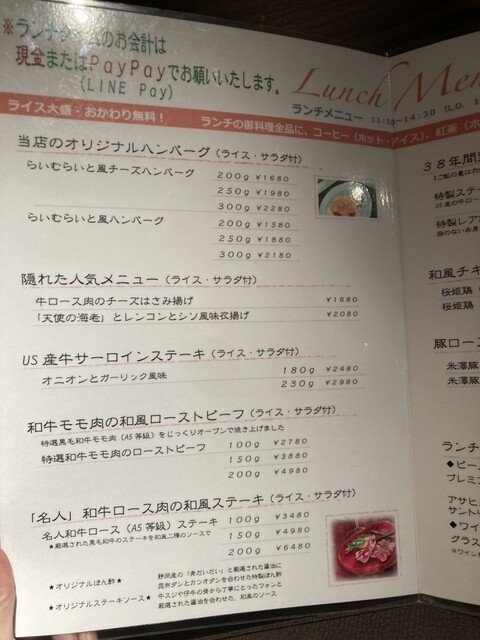 ※ランチタイムのお会計は
現金またはPayPayでお願いいたします。
(LINE Pay)
Lunch Men
ランチメニュー 11:30~14:30 (L.O.
ライス大盛・おかわり無料！ ランチの御料理全品に、コーヒー(ホット・アイス)、紅茶(ホ
当店のオリジナルハンバーグ(ライス・サラダ付)
らいむらいと風チーズハンバーグ 200g ¥1680
250g ¥1980
300g ¥2280
らいむらいと風ハンバーグ 200g ¥1580
250g ¥1880
300g ¥2180
隠れた人気メニュー(ライス・サラダ付)
牛ロース肉のチーズはさみ揚げ ¥1680
「天使の海老」とレンコンとシソ風味衣揚げ ¥2080
US産牛サーロインステーキ(ライス・サラダ付)
オニオンとガーリック風味 180g ¥2480
230g ¥2980
和牛モモ肉の和風ローストビーフ(ライス・サラダ付)
特選黒毛和牛モモ肉(A5等級)をじっくりオーブンで焼き上げました
特選和牛モモ肉のローストビーフ 100g ¥2780
150g ¥3880
200g ¥4980
「名人」和牛ロース肉の和風ステーキ(ライス・サラダ付)
名人和牛ロース(A5等級)ステーキ 100g ¥3480
★厳選された黒毛和牛のステーキを和風二種のソースで 150g ¥4980
200g ¥6480
★オリジナルぽん酢★ 静岡産の「食だいだい」と厳選された醤油に
昆布ダシとカツオダシを合わせた特製ぽん酢
★オリジナルステーキソース★ 牛スジや仔牛の骨から丁寧にとったフォンと
厳選された醤油を合わせた、和風のソース
38年間
特製ステ
US産の牛ロー
特製レア
和風チキ
桜姫鶏
桜姫鶏
豚ロー
米澤豚
米澤豚
ランチ
◆ビー
プレミ
アサヒ
サント
◆ワイ
グラス
※ワイン